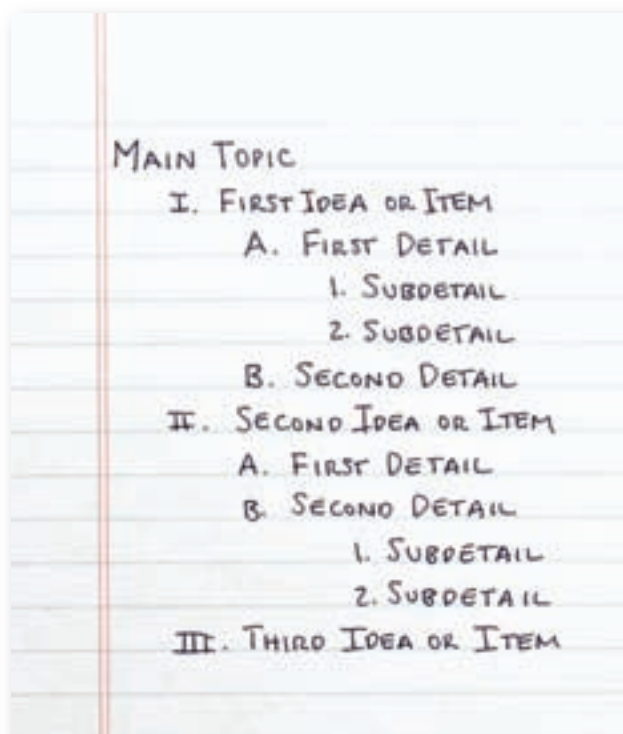 MAIN TOPIC
I. FIRST IDEA OR ITEM
A. FIRST DETAIL
1. SUBDETAIL
2. SUBDETAIL
B. SECOND DETAIL
II. SECOND IDEA OR ITEM
A. FIRST DETAIL
B. SECOND DETAIL
1. SUBDETAIL
2. SUBDETAIL
III. THIRD IDEA OR ITEM